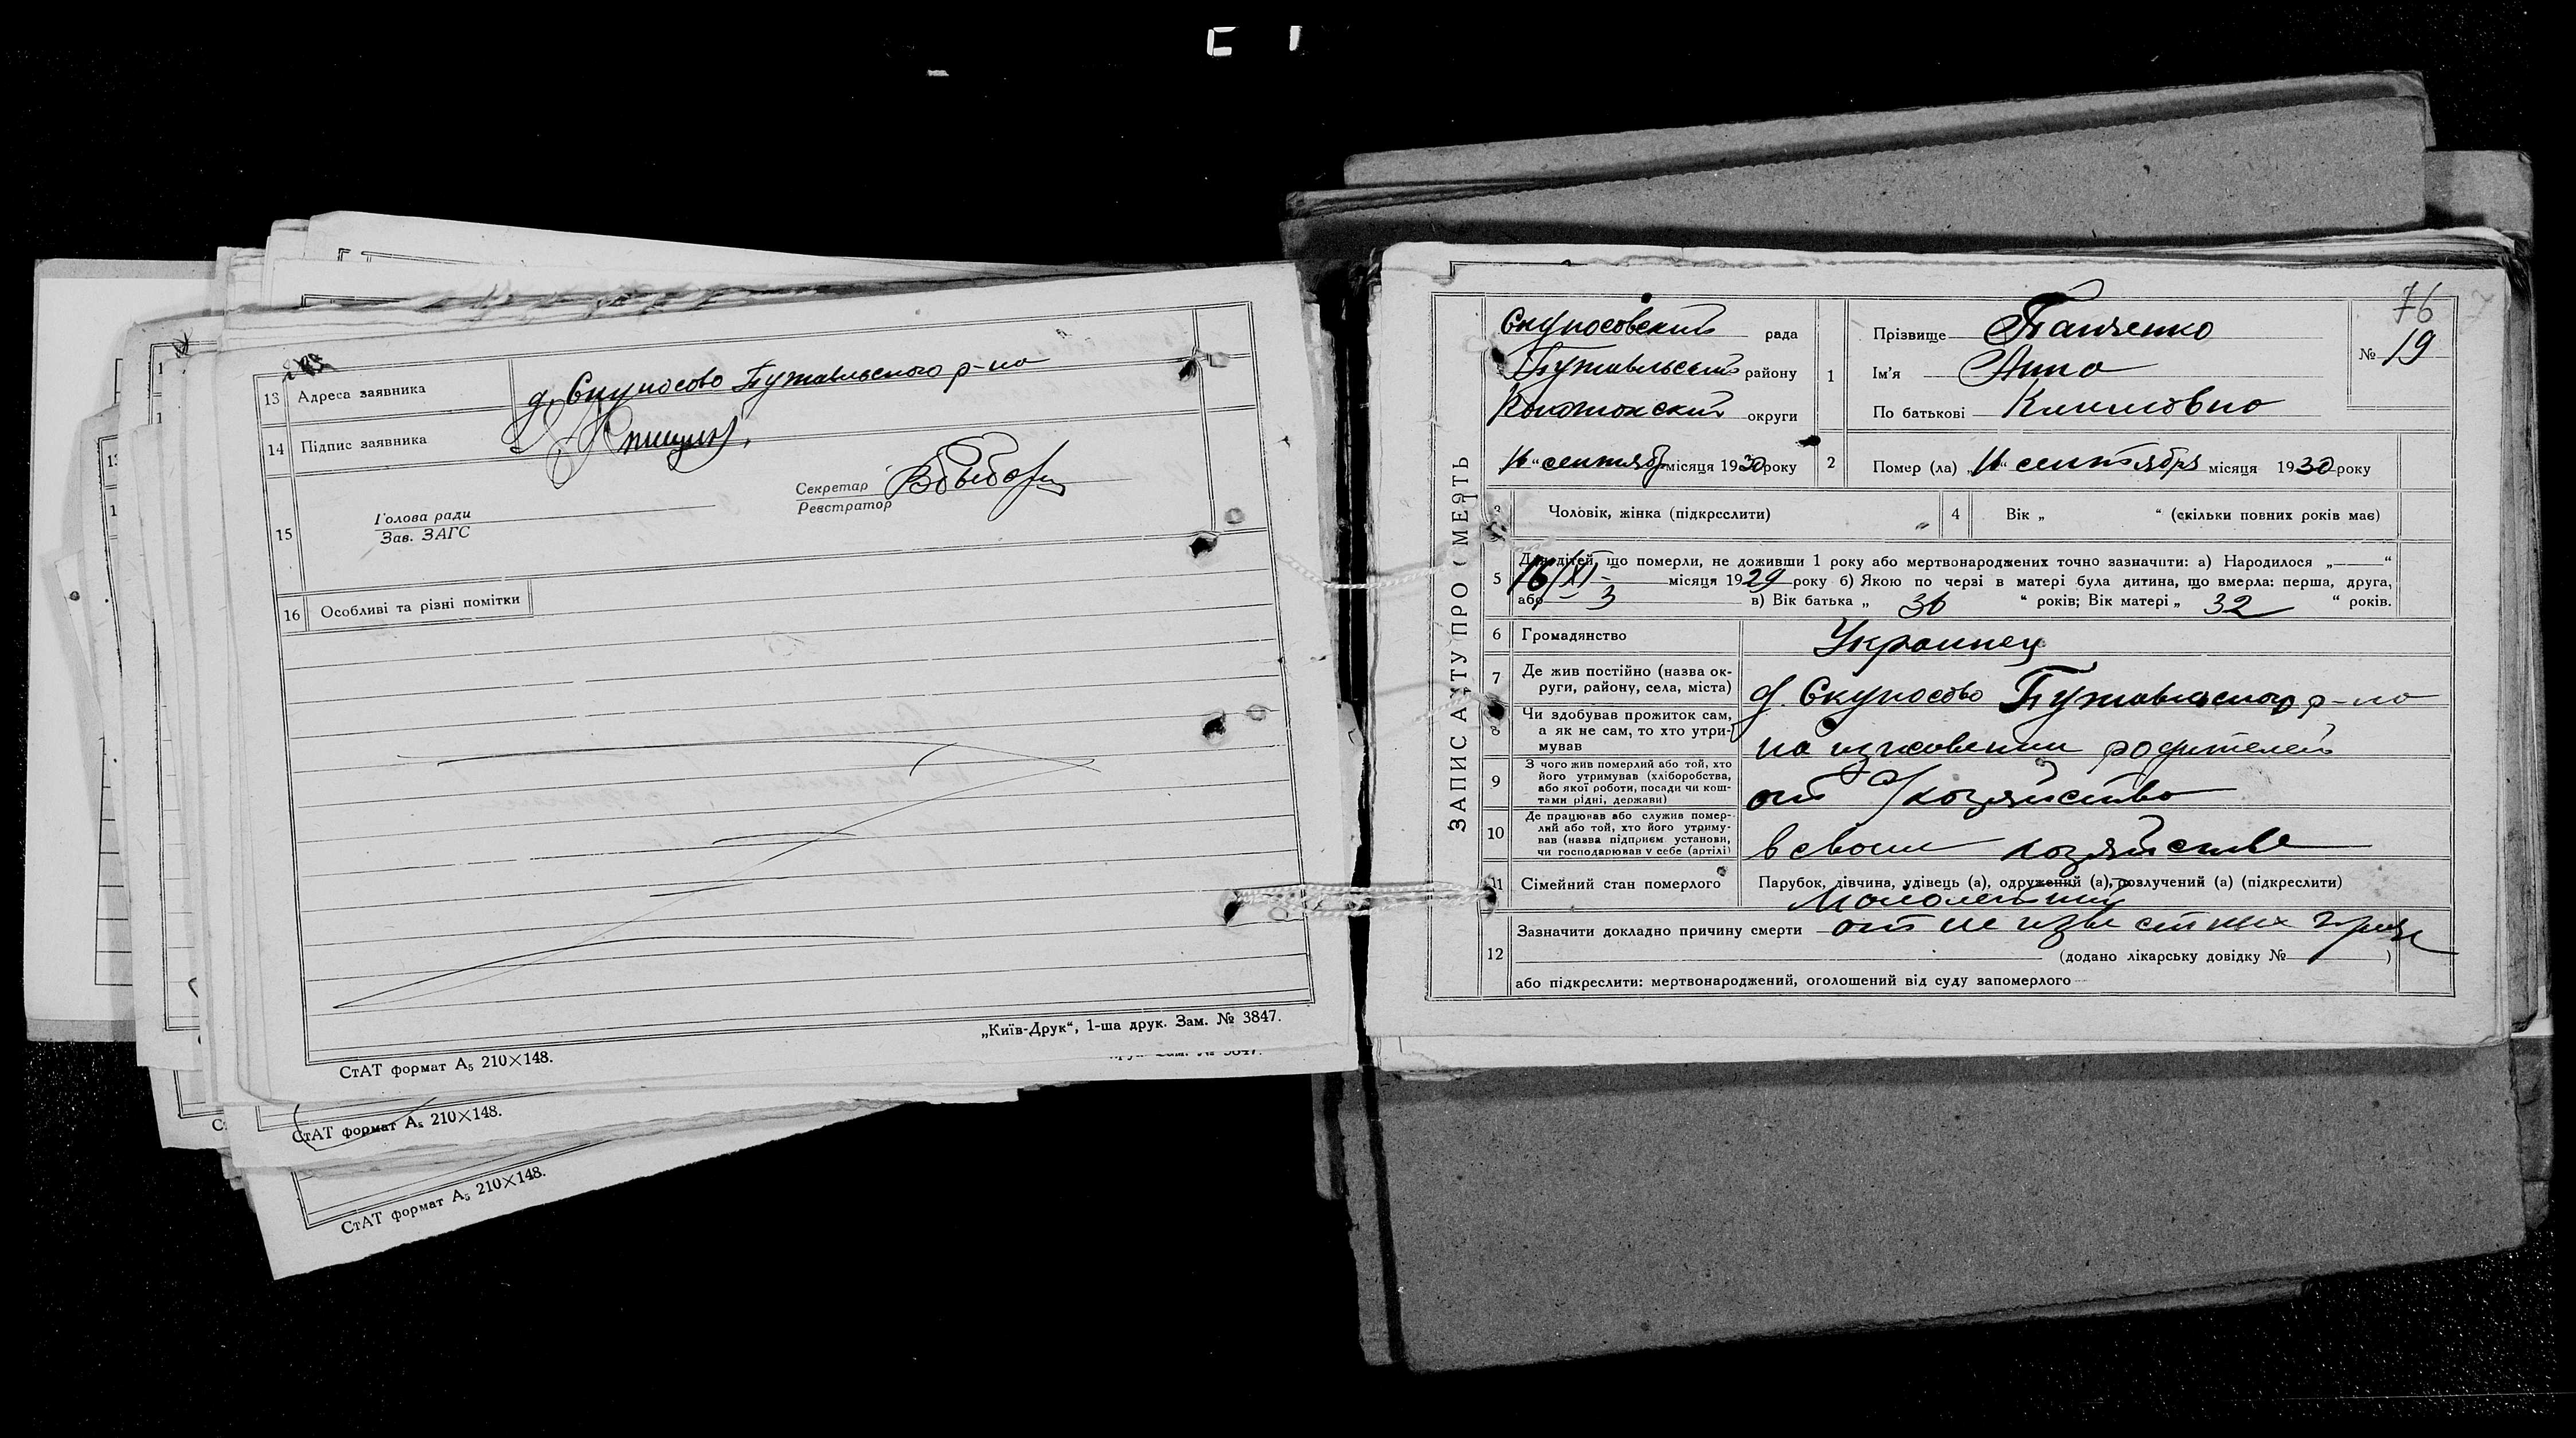 13 Адреса заявника д. Скуносово Путивльского р-на
14 Підпис заявника
15 Голова ради
Зав. ЗАГС
Секретар
Реєстратор
16 Особливі та різні помітки
„Київ-Друк“, 1-ша друк. Зам. № 3847.
СтАТ формат А₅ 210×148.
СтАТ формат А₅ 210×148.
СтАТ формат А₅ 210×148.
ЗАПИС АКТУ ПРО СМЕРТЬ
76
Скуносовский рада
Путивльский району
Конотопский округи
16 „сентябр місяця 1930 року
1 Прізвище Панченко
Ім'я Анна
По батькові Климовна
№ 19
2 Помер (ла) „16“ сентября місяця 1930 року
3 Чоловік, жінка (підкреслити)
4 Вік „ “ (скільки повних років має)
5 Для дітей, що померли, не доживши 1 року або мертвонароджених точно зазначити: а) Народилося „ “
16/XI - місяця 1929 року б) Якою по черзі в матері була дитина, що вмерла: перша, друга,
або 3 в) Вік батька „ 36 “ років; Вік матері „ 32 “ років.
6 Громадянство Украинец
7 Де жив постійно (назва ок-
руги, району, села, міста) д. Скуносово Путивльского р-на
8 Чи здобував прожиток сам,
а як не сам, то хто утри-
мував на иждивении родителей
9 З чого жив померлий або той, хто
його утримував (хліборобства,
або якої роботи, посади чи кош-
тами рідні, держави) от с/хозяйства
10 Де працював або служив помер-
лий або той, хто його утриму-
вав (назва підприєм установи,
чи господарював у себе (артілі) в своем хозяйстве
11 Сімейний стан померлого Парубок, дівчина, удівець (а), одружений (а), розлучений (а) (підкреслити)
Малолетний
12 Зазначити докладно причину смерти от не известных
(додано лікарську довідку № )
або підкреслити: мертвонароджений, оголошений від суду запомерлого